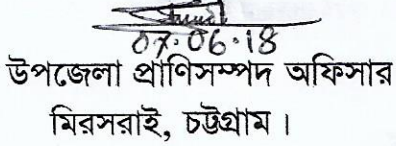 07.06.18
উপজেলা প্রাণিসম্পদ অফিসার
মিরসরাই, চট্টগ্রাম।